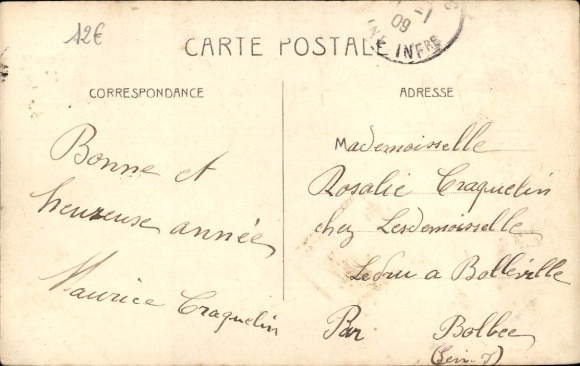 12€
-1
09
INFRE
CARTE POSTALE
CORRESPONDANCE
ADRESSE
Bonne et
heureuse année
Maurice Craquelin
Mademoisselle
Rosalie Craquelin
chez Lesdemoisselle
Leduc a Bolleville
Par Bolbec
(Sein-I)